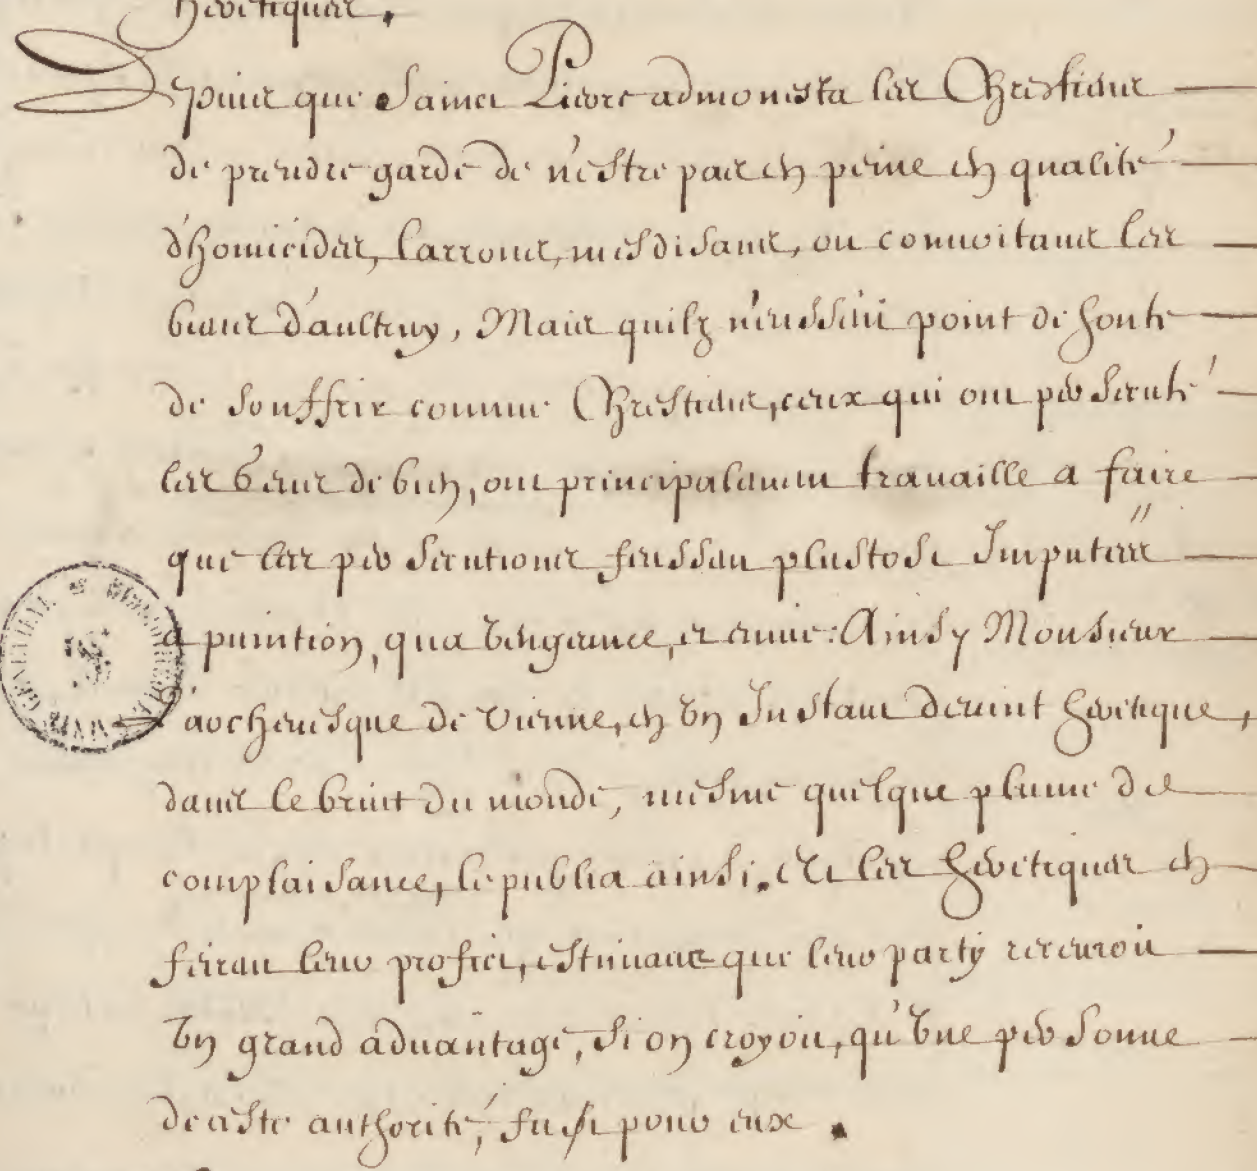 heretiques.
Depuis que Sainct Pierre admonesta les Chrestiens
de prendre garde de n'estre pas en peine en qualité
d'homicides, larrons, mesdisants, ou convoitans les
biens d'aultruy, Mais quilz n'eussent point de honte
de souffrir comme Chrestiens, ceux qui ont persecuté
les gens de bien, ont principalement travaille a faire
que les persecutions feussent plustost Imputées
a punition, qua vengeance, et envie: Ainsy Monsieur
L'archevesque de vienne, en un Instant devint heretique,
dans le bruit du monde, mesme quelque plume de
complaisance, le publia ainsi. Et les heretiques en
feirent leur profict, estimans que leur party recevroit
un grand advantage, si on croyoit, qu'une personne
de ceste authorité, fust pour eux.